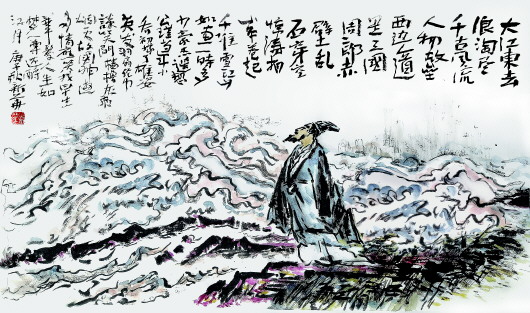 大江東去
浪淘盡
千古風流
人物故壘
西边人道
是三國
周郎赤
壁亂
石穿空
驚濤拍
岸卷起
千堆雪江山
如畫一時多
少豪杰遙想
公瑾當年小
喬初嫁了雄姿
英發羽扇綸巾
談笑間檣櫓灰飛
烟滅故國神遊
多情應笑我早生
華髮人生如
夢一尊還酹
江月